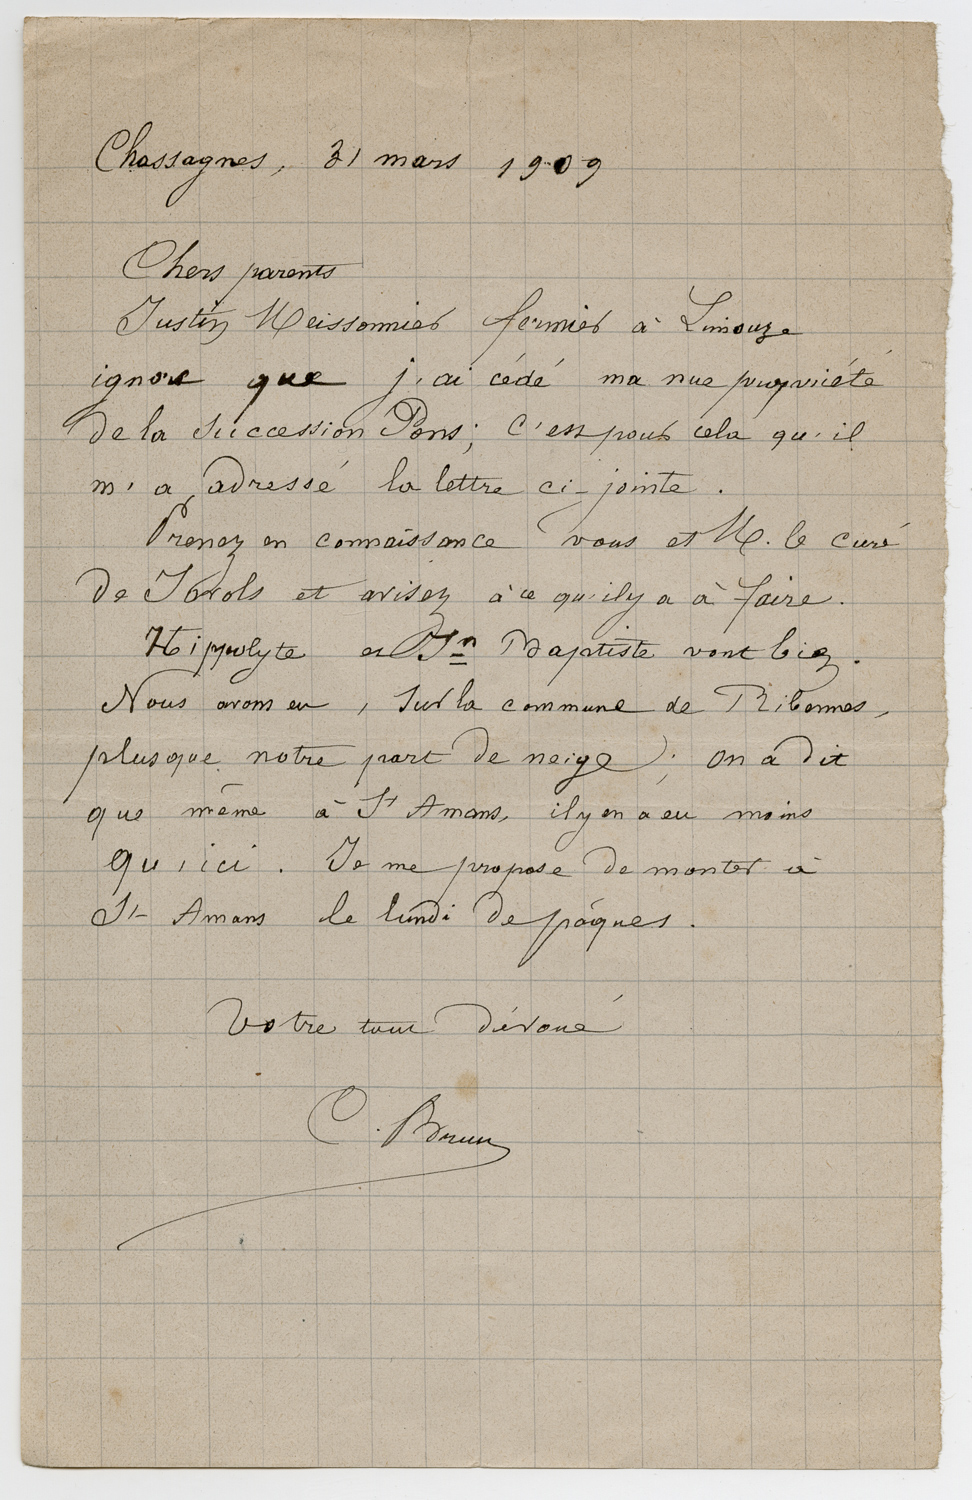 Chassagnes, 31 mars 1909
Chers parents
Justin Meissonnier fermier à Limouze
ignore que j'ai cédé ma nue propriété
de la succession Pons; c'est pour cela qu'il
m'a adressé la lettre ci-jointe.
Prenez en connaissance vous et M. le curé
de Javols et avisez à ce qu'il y a à faire.
Hippolyte et Jn Baptiste vont bien.
Nous avons eu, sur la commune de Ribennes,
plus que notre part de neige; on a dit
que même à St Amans, il y en a eu moins
qu'ici. Je me propose de monter à
St-Amans le lundi de pâques.
Votre tout dévoué
C. Brun